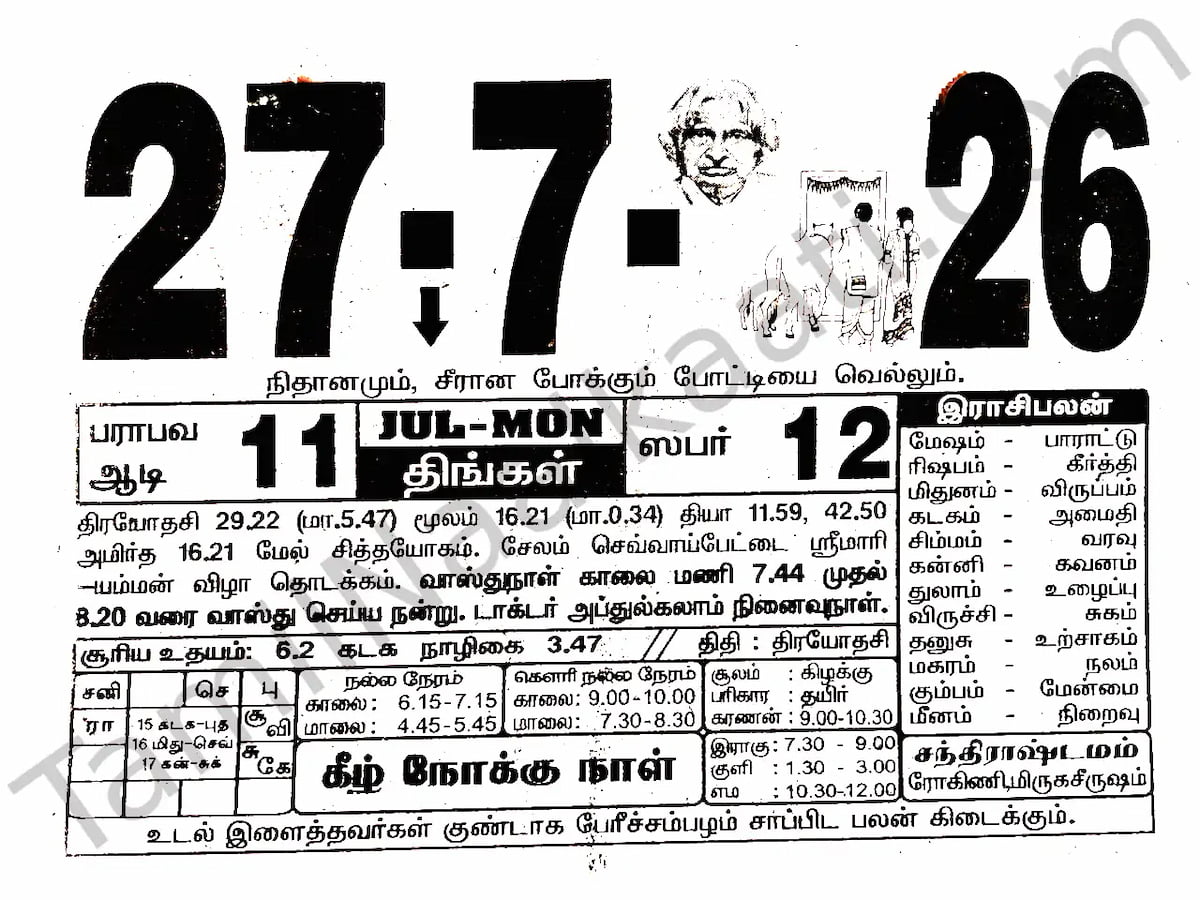 27-7-26
நிதானமும், சீரான போக்கும் போட்டியை வெல்லும்.
பராபவ
ஆடி
11
JUL-MON
திங்கள்
ஸபர்
12
திரயோதசி 29.22 (மா.5.47) மூலம் 16.21 (மா.0.34) தியா 11.59, 42.50
அமிர்த 16.21 மேல் சித்தயோகம். சேலம் செவ்வாய்பேட்டை ஸ்ரீமாரி
-யம்மன் விழா தொடக்கம். வாஸ்துநாள் காலை மணி 7.44 முதல்
8.20 வரை வாஸ்து செய்ய நன்று. டாக்டர் அப்துல்கலாம் நினைவுநாள்.
சூரிய உதயம்: 6.2 கடக நாழிகை 3.47 // திதி : திரயோதசி
சனி செ பு
ரா
15 கடக-புத
16 மிது-செவ்
17 கன்-சுக்
சூ
வி
சு
கே
நல்ல நேரம்
காலை: 6.15-7.15
மாலை: 4.45-5.45
கௌரி நல்ல நேரம்
காலை: 9.00-10.00
மாலை: 7.30-8.30
கீழ் நோக்கு நாள்
சூலம் : கிழக்கு
பரிகார : தயிர்
கரணன் : 9.00-10.30
இராகு: 7.30 - 9.00
குளி : 1.30 - 3.00
எம : 10.30-12.00
இராசிபலன்
மேஷம் - பாராட்டு
ரிஷபம் - கீர்த்தி
மிதுனம் - விருப்பம்
கடகம் - அமைதி
சிம்மம் - வரவு
கன்னி - கவனம்
துலாம் - உழைப்பு
விருச்சி - சுகம்
தனுசு - உற்சாகம்
மகரம் - நலம்
கும்பம் - மேன்மை
மீனம் - நிறைவு
சந்திராஷ்டமம்
ரோகிணி,மிருகசீருஷம்
உடல் இளைத்தவர்கள் குண்டாக பேரீச்சம்பழம் சாப்பிட பலன் கிடைக்கும்.
TamilNaalkaati.com